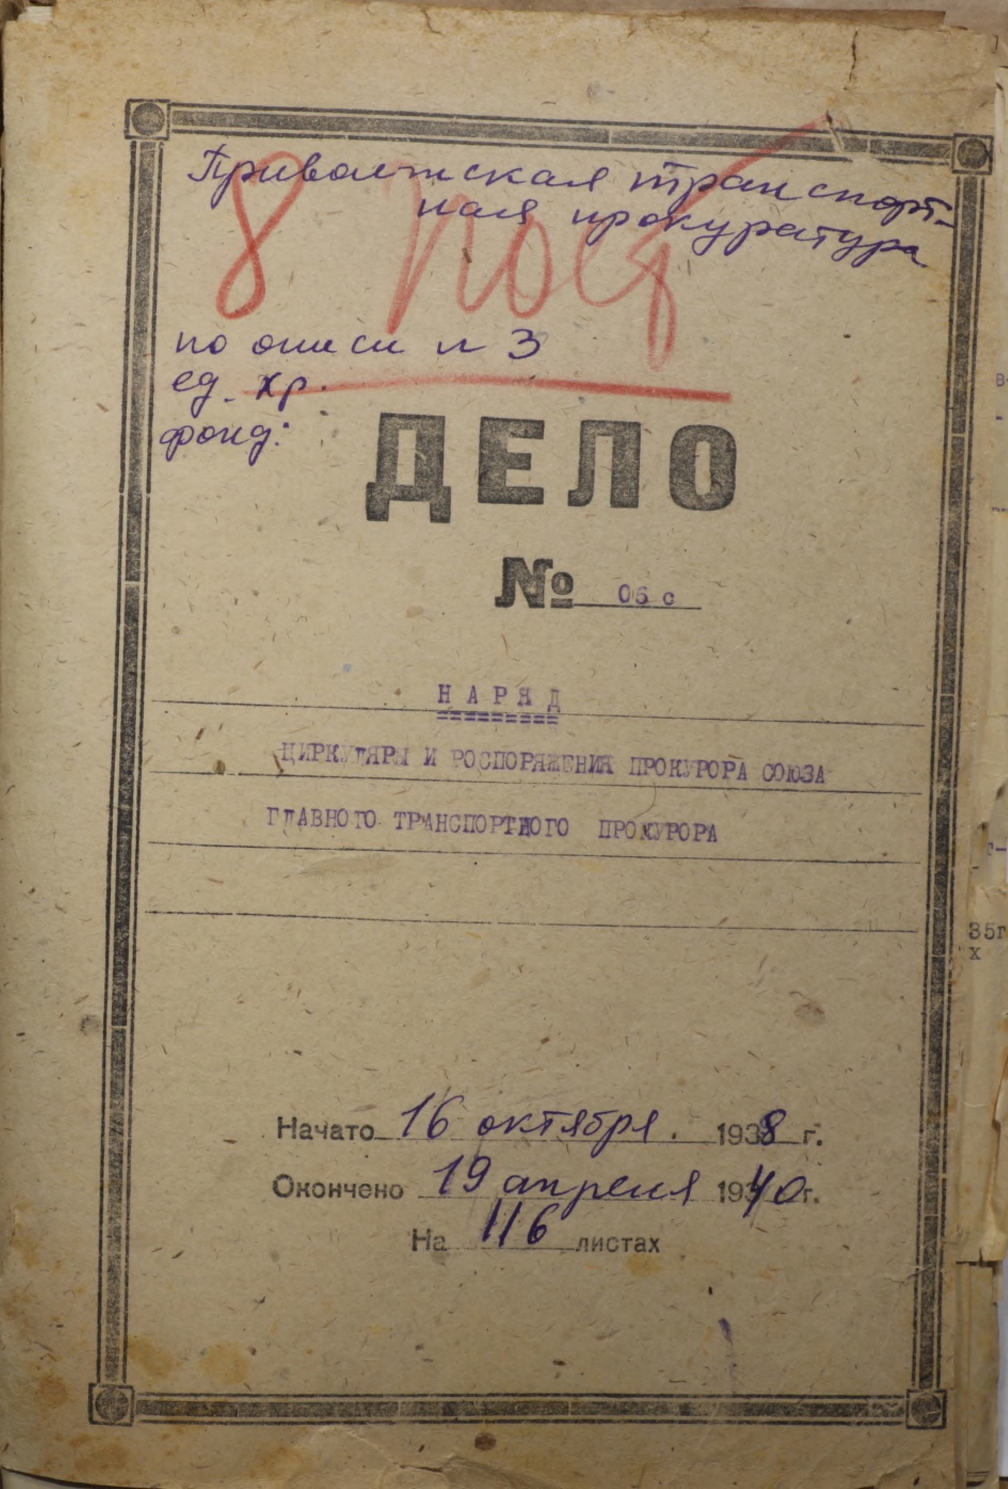 Приволжская транспорт-
ная прокуратура
8
по описи № 3
ед. хр.
фонд:
ДЕЛО
№ 06 с
НАРЯД
ЦИРКУЛЯРЫ И РОСПОРЯЖЕНИЯ ПРОКУРОРА СОЮЗА
ГЛАВНОГО ТРАНСПОРТНОГО ПРОКУРОРА
Начато 16 октября. 1938 г.
Окончено 19 апреля 1940 г.
На 116 листах
35г
х